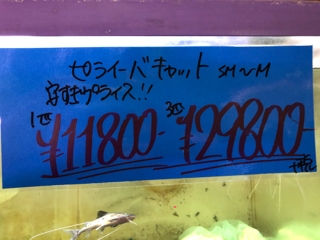 ピライーバキャット SM〜M
安すぎプライス!!
1匹 ¥11800- 3匹 ¥29800-